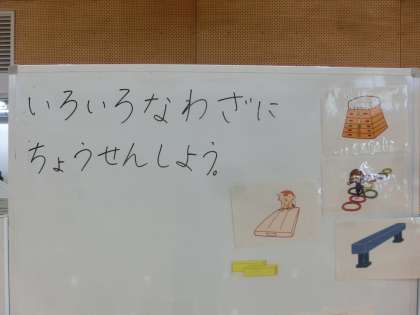 いろいろなわざに
ちょうせんしよう。